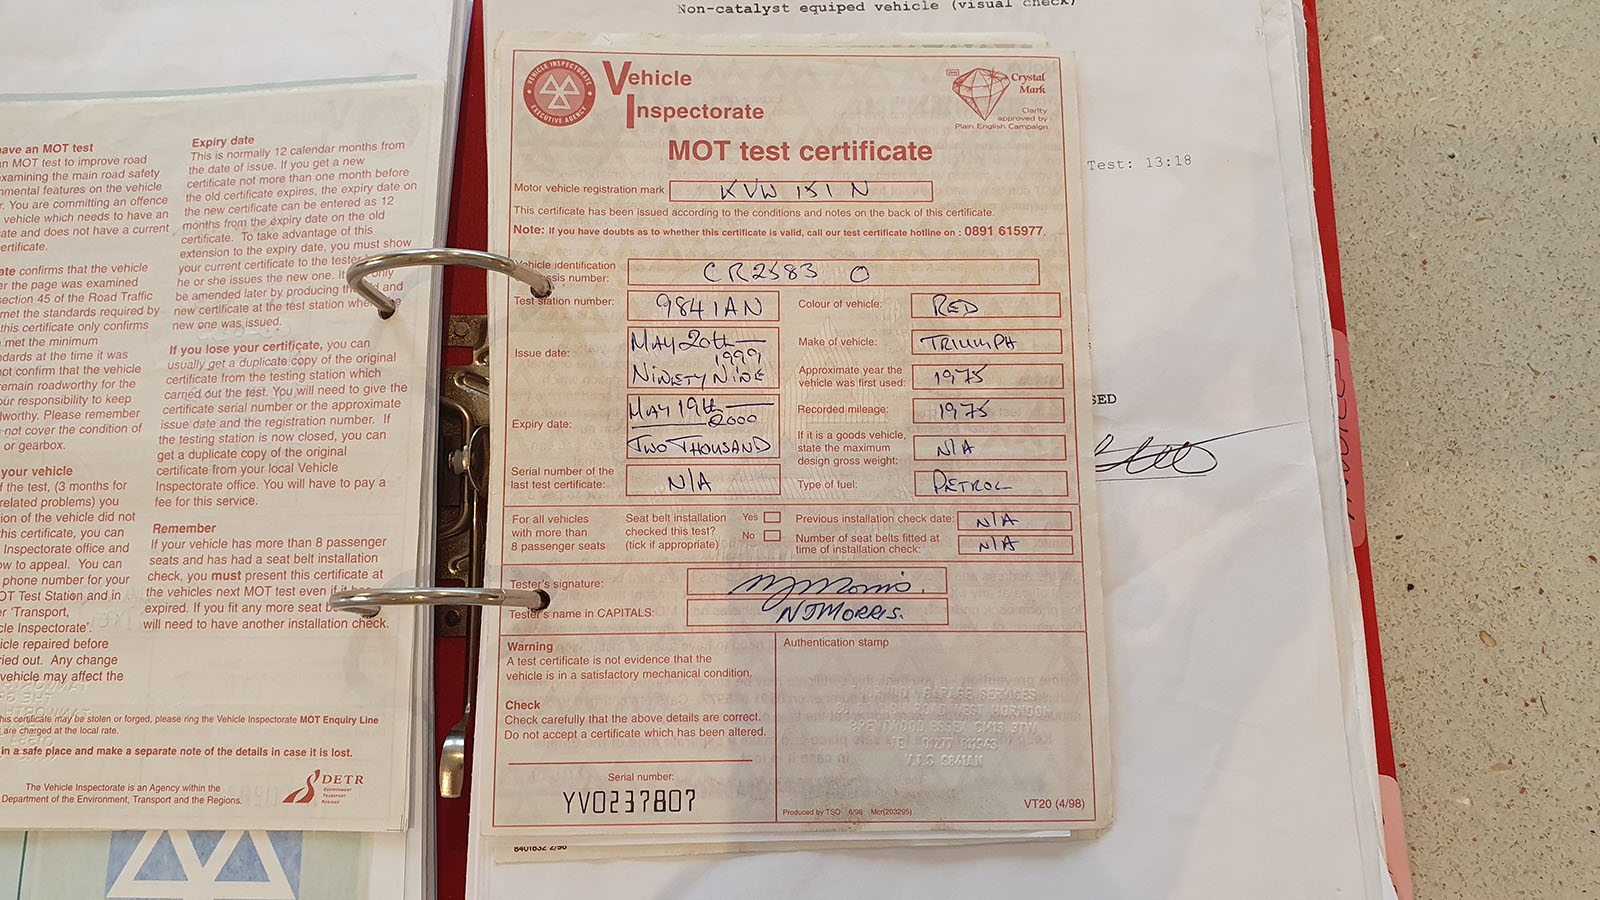 Non-catalyst equiped vehicle (visual check)
Test: 13:18
have an MOT test
an MOT test to improve road
examining the main road safety
nmental features on the vehicle
r. You are committing an offence
vehicle which needs to have an
cate and does not have a current
ertificate.
ate confirms that the vehicle
er the page was examined
section 45 of the Road Traffic
met the standards required by
this certificate only confirms
met the minimum
ndards at the time it was
not confirm that the vehicle
remain roadworthy for the
our responsibility to keep
dworthy. Please remember
not cover the condition of
or gearbox.
your vehicle
f the test, (3 months for
related problems) you
ion of the vehicle did not
this certificate, you can
Inspectorate office and
ow to appeal. You can
phone number for your
OT Test Station and in
er 'Transport,
cle Inspectorate'.
icle repaired before
ried out. Any change
vehicle may affect the
Expiry date
This is normally 12 calendar months from
the date of issue. If you get a new
certificate not more than one month before
the old certificate expires, the expiry date on
the new certificate can be entered as 12
months from the expiry date on the old
certificate. To take advantage of this
extension to the expiry date, you must show
your current certificate to the tester
he or she issues the new one. It only
be amended later by producing and
new certificate at the test station where
new one was issued.
If you lose your certificate, you can
usually get a duplicate copy of the original
certificate from the testing station which
carried out the test. You will need to give the
certificate serial number or the approximate
issue date and the registration number. If
the testing station is now closed, you can
get a duplicate copy of the original
certificate from your local Vehicle
Inspectorate office. You will have to pay a
fee for this service.
Remember
If your vehicle has more than 8 passenger
seats and has had a seat belt installation
check, you must present this certificate at
the vehicles next MOT test even if it
expired. If you fit any more seat
will need to have another installation check.
his certificate may be stolen or forged, please ring the Vehicle Inspectorate MOT Enquiry Line
are charged at the local rate.
in a safe place and make a separate note of the details in case it is lost.
The Vehicle Inspectorate is an Agency within the
Department of the Environment, Transport and the Regions.
DETR
ENVIRONMENT
TRANSPORT
REGIONS
VEHICLE INSPECTORATE
EXECUTIVE AGENCY
Vehicle
Inspectorate
Crystal
Mark
Clarity
approved by
Plain English Campaign
MOT test certificate
Motor vehicle registration mark KVW 151 N
This certificate has been issued according to the conditions and notes on the back of this certificate.
Note: If you have doubts as to whether this certificate is valid, call our test certificate hotline on : 0891 615977.
Vehicle identification
chassis number: CR2583 O
Test station number: 9841AN
Colour of vehicle: RED
Issue date: MAY 20th 1999 NINETY NINE
Make of vehicle: TRIUMPH
Approximate year the
vehicle was first used: 1975
Expiry date: MAY 19th 2000 TWO THOUSAND
Recorded mileage: 1975
If it is a goods vehicle,
state the maximum
design gross weight: N/A
Serial number of the
last test certificate: N/A
Type of fuel: PETROL
For all vehicles
with more than
8 passenger seats
Seat belt installation
checked this test?
(tick if appropriate)
Yes
No
Previous installation check date: N/A
Number of seat belts fitted at
time of installation check: N/A
Tester's signature:
Tester's name in CAPITALS: NJMORRIS.
Warning
A test certificate is not evidence that the
vehicle is in a satisfactory mechanical condition.
Check
Check carefully that the above details are correct.
Do not accept a certificate which has been altered.
Serial number:
YV0237807
Authentication stamp
GARAGE SERVICES
WEST HORNDON
BRENTWOOD ESSEX CM13 3TW
TEL 01277 811943
V.T.S 9841AN
Produced by TSO 6/98 Mcr(203295)
VT20 (4/98)
8401832 2/98
SED